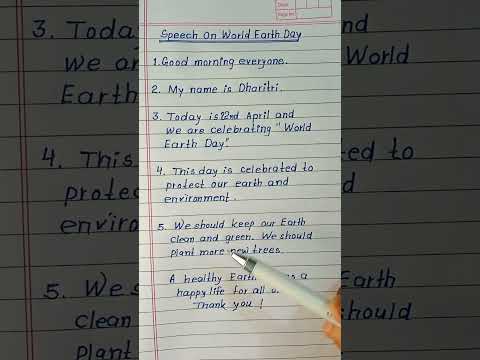 Date:
Page No:
Speech On World Earth Day
1. Good morning everyone.
2. My name is Dharitri.
3. Today is 22nd April and
we are celebrating "World
Earth Day".
4. This day is celebrated to
protect our earth and
environment.
5. We should keep our Earth
clean and green. We should
plant more new trees.
A healthy Earth a
happy life for all
Thank you !
3. Toda
we are
Earth
World
4. This
protect
environ
to
d
5. We s
Clean
Plant
arth
hould
s.